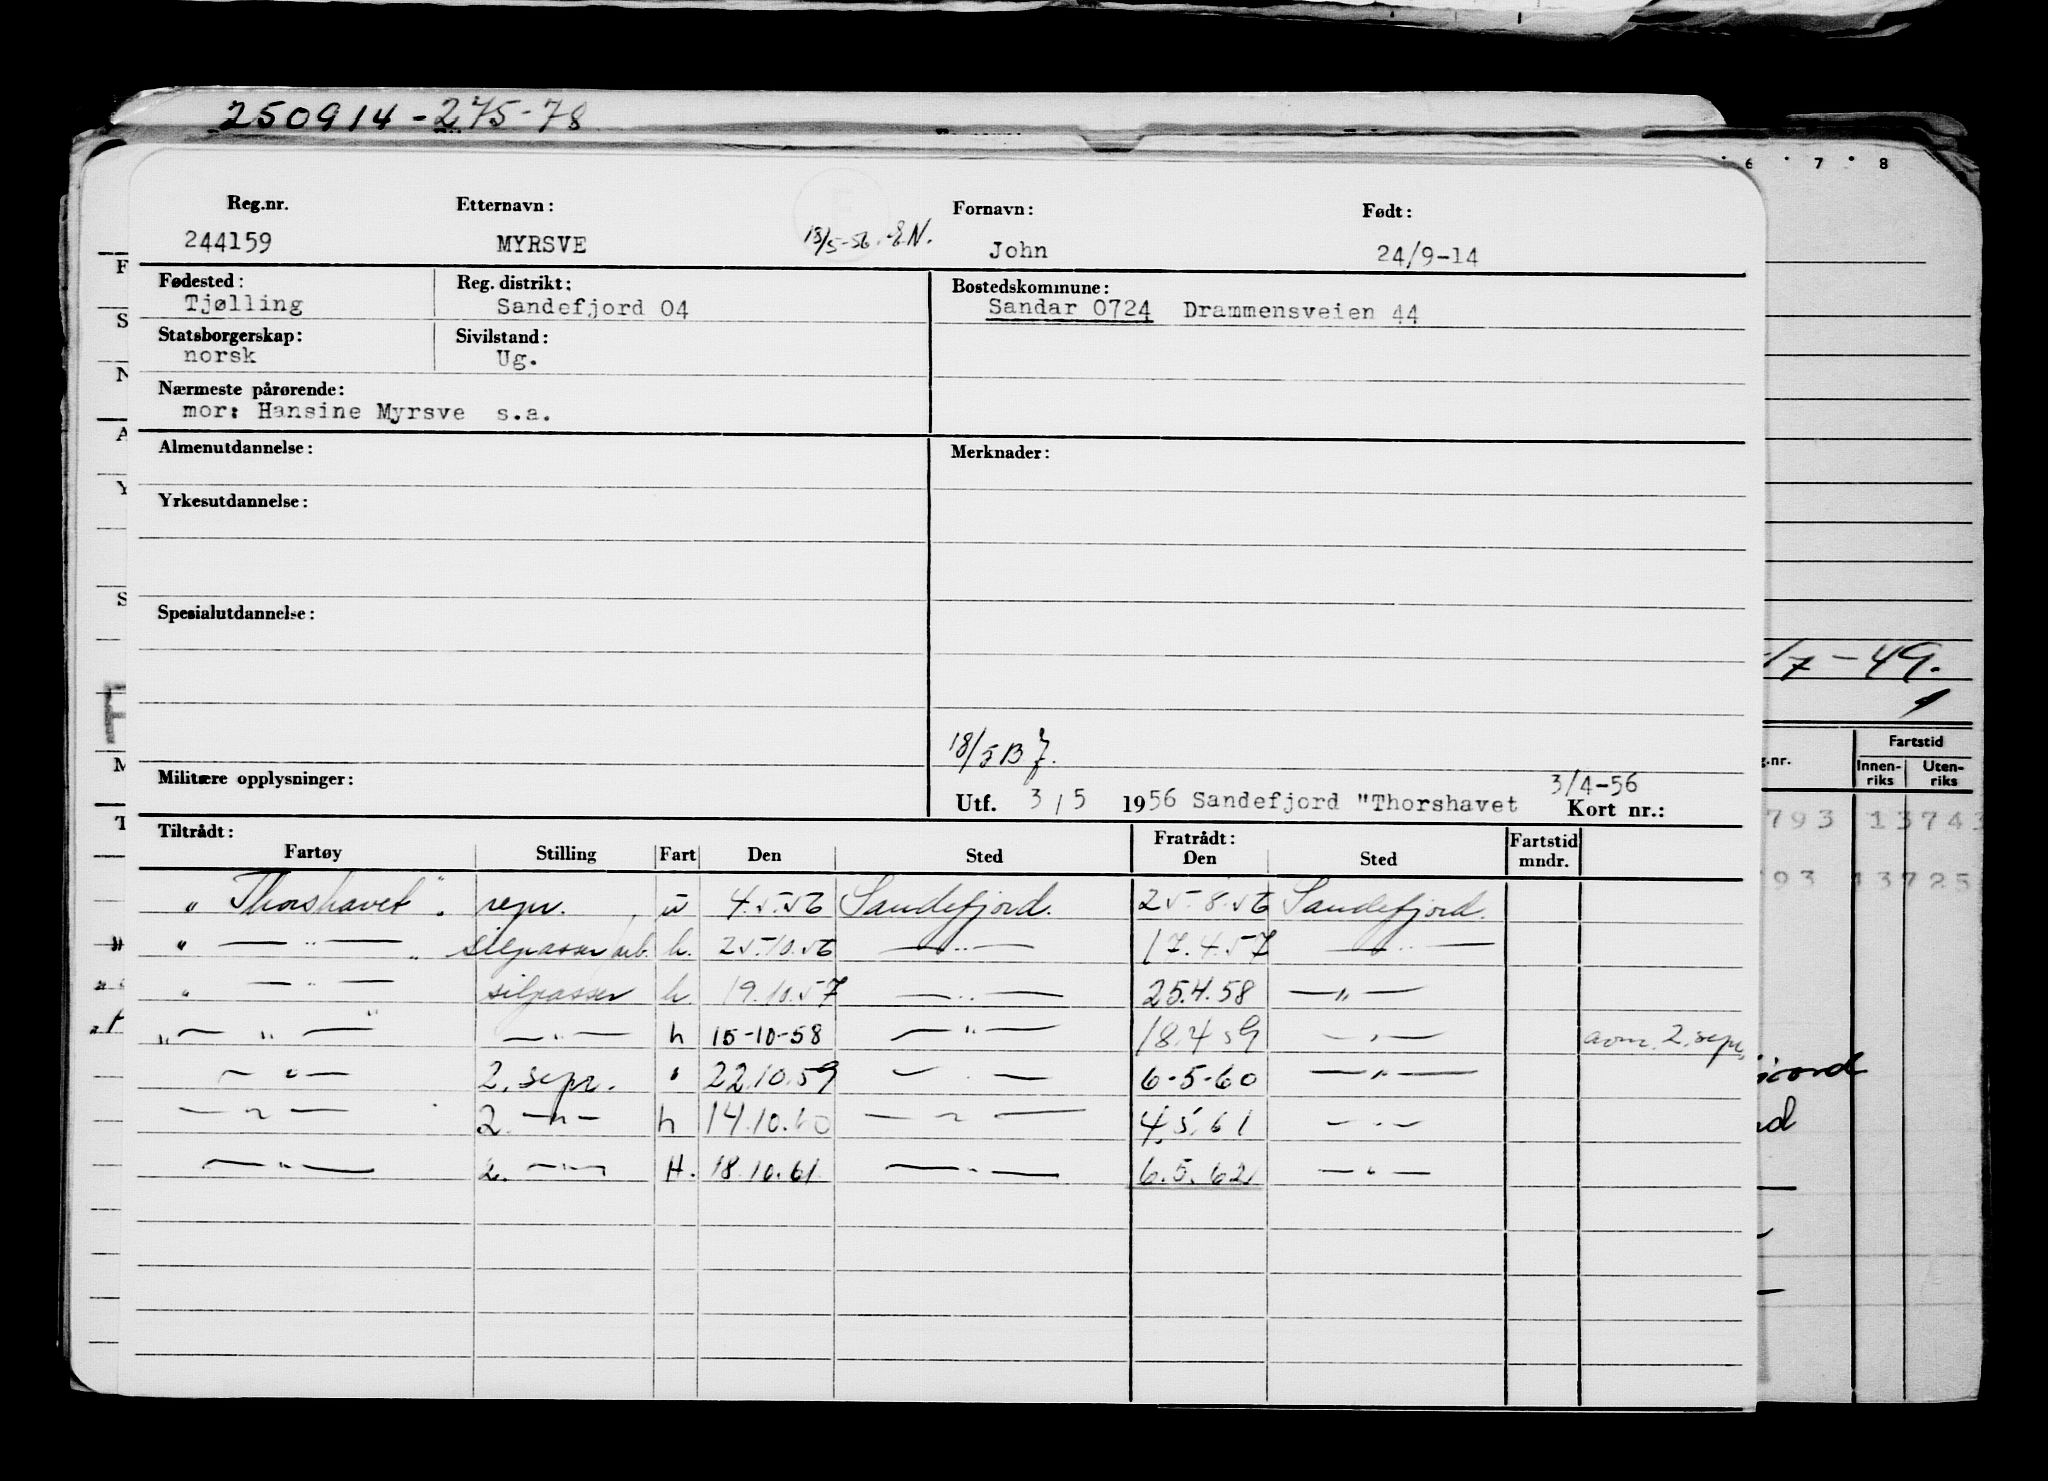 250914-275-78
6 · 7 · 8
Reg.nr. Etternavn: Fornavn: Født:
244159 MYRSVE 18/5-56. E.N. John 24/9-14
Fødested: Reg. distrikt: Bostedskommune:
Tjølling Sandefjord 04 Sandar 0724 Drammensveien 44
Statsborgerskap: Sivilstand:
norsk Ug.
Nærmeste pårørende:
mor: Hansine Myrsve s.a.
Almenutdannelse: Merknader:
Yrkesutdannelse:
Spesialutdannelse:
/7-49.
18/5 B
Militære opplysninger:
3/4-56
Utf. 3/5 1956 Sandefjord "Thorshavet Kort nr.:
Tiltrådt: Fratrådt: Fartstid
Fartøy Stilling Fart Den Sted Den Sted mndr.
"Thorshavet". repr. u 4.5.56 Sandefjord. 25.8.56 Sandefjord.
" — " — " silpasser/arb. h. 25.10.56 — " — 17.4.57 — " —
" — " — " silpasser h 19.10.57 — " — 25.4.58 — " —
" — " — — " — h 15-10-58 — " — 18.4.59 — " — 2. sepr.
— " — 2. sepr. " 22.10.59 — " — 6-5-60 — " —
— " — 2. — " — h 14.10.60 — " — 4.5.61 — " —
— " — 2. — " — H. 18.10.61 — " — 6.5.62 — " —
Fartstid
g.nr. Innen-riks Uten-riks
793 13743
93 13725